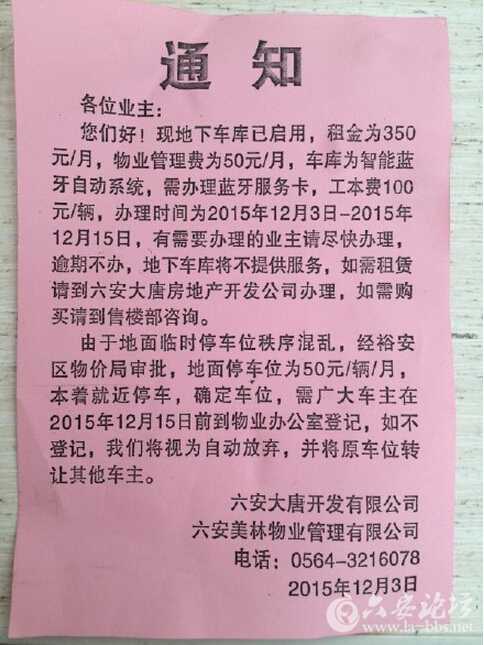 通知
各位业主：
您们好！现地下车库已启用，租金为350
元/月，物业管理费为50元/月，车库为智能蓝
牙自动系统，需办理蓝牙服务卡，工本费100
元/辆，办理时间为2015年12月3日-2015年
12月15日，有需要办理的业主请尽快办理，
逾期不办，地下车库将不提供服务，如需租赁
请到六安大唐房地产开发公司办理，如需购
买请到售楼部咨询。
由于地面临时停车位秩序混乱，经裕安
区物价局审批，地面停车位为50元/辆/月，
本着就近停车，确定车位，需广大车主在
2015年12月15日前到物业办公室登记，如不
登记，我们将视为自动放弃，并将原车位转
让其他车主。
六安大唐开发有限公司
六安美林物业管理有限公司
电话：0564-3216078
2015年12月3日
六安论坛
www.la-bbs.net